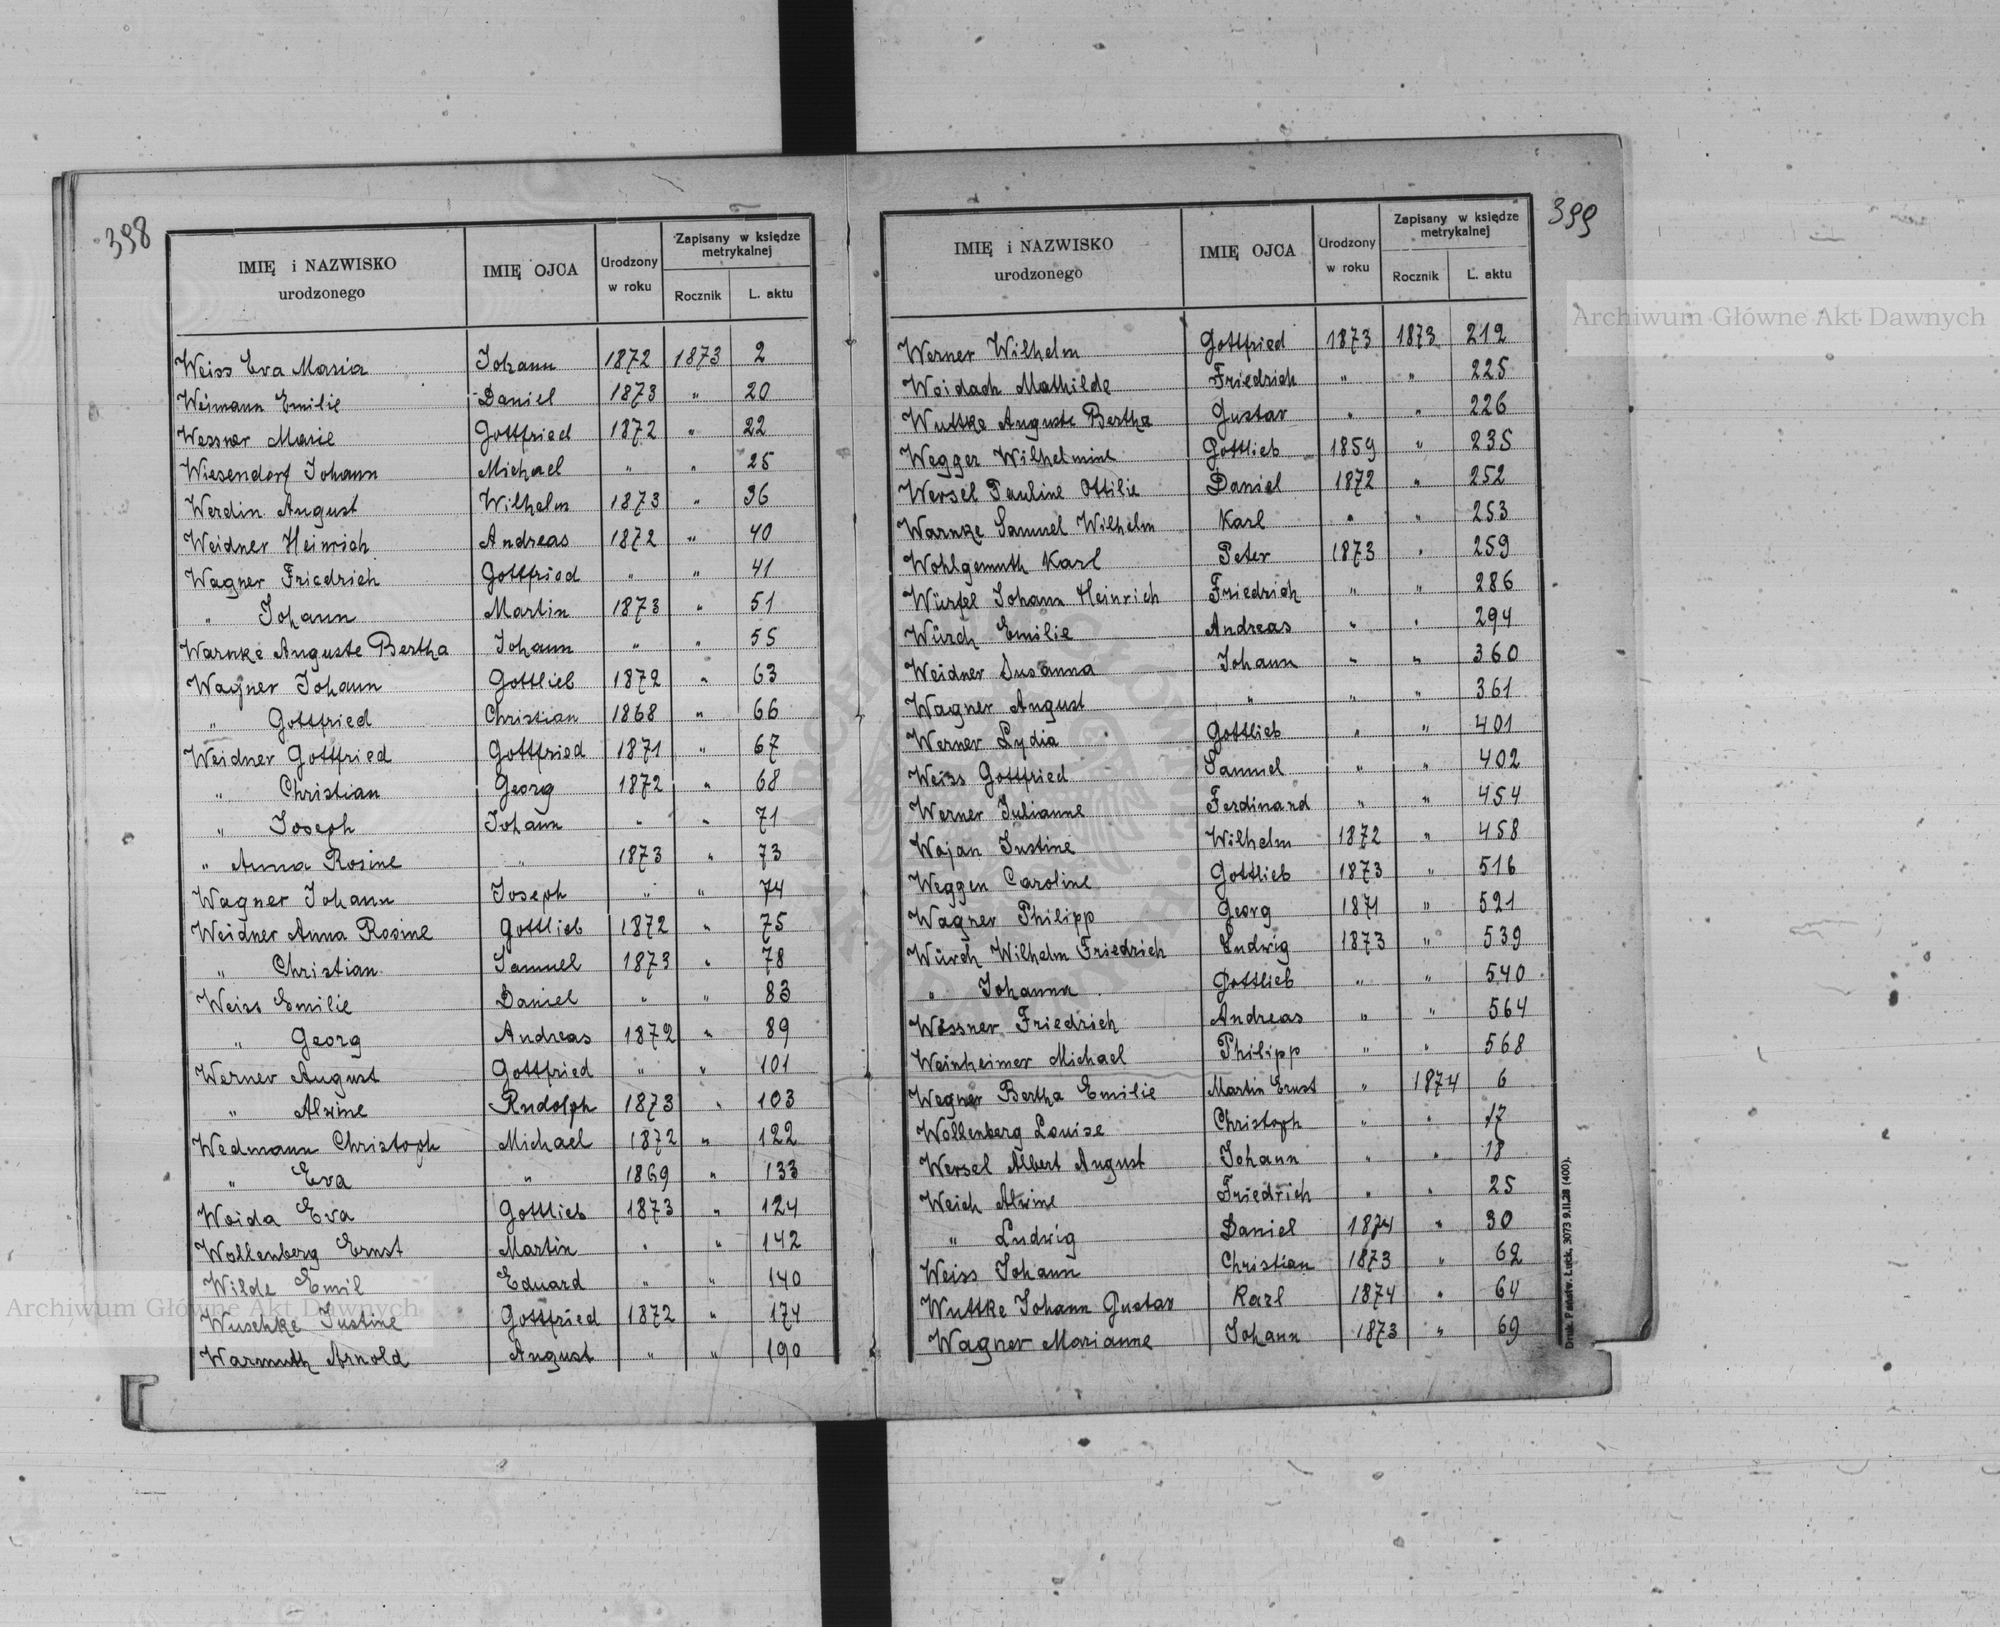 398
IMIĘ i NAZWISKO urodzonego IMIĘ OJCA Urodzony w roku Zapisany w księdze metrykalnej Rocznik L. aktu
Weiss Eva Maria Johann 1872 1873 2
Weimann Emilie Daniel 1873 " 20
Wessner Marie Gottfried 1872 " 22
Wiesendorf Johann Michael " " 25
Werdin August Wilhelm 1873 " 36
Weidner Heinrich Andreas 1872 " 40
Wagner Friedrich Gottfried " " 41
" Johann Martin 1873 " 51
Warnke Auguste Bertha Johann " " 55
Wagner Johann Gottlieb 1872 " 63
" Gottfried Christian 1868 " 66
Weidner Gottfried Gottfried 1871 " 67
" Christian Georg 1872 " 68
" Joseph Johann " " 71
" Anna Rosine " 1873 " 73
Wagner Johann Joseph " " 74
Weidner Anna Rosine Gottlieb 1872 " 75
" Christian Samuel 1873 " 78
Weiss Emilie Daniel " " 83
" Georg Andreas 1872 " 89
Werner August Gottfried " " 101
" Alwine Rudolph 1873 " 103
Wedmann Christoph Michael 1872 " 122
" Eva " 1869 " 133
Woida Eva Gottlieb 1873 " 124
Wollenberg Ernst Martin " " 142
Wilde Emil Eduard " " 140
Wuschke Justine Gottfried 1872 " 174
Warmuth Arnold August " " 190
399
IMIĘ i NAZWISKO urodzonego IMIĘ OJCA Urodzony w roku Zapisany w księdze metrykalnej Rocznik L. aktu
Werner Wilhelm Gottfried 1873 1873 212
Woidach Mathilde Friedrich " " 225
Wuttke Auguste Bertha Gustav " " 226
Wegger Wilhelmine Gottlieb 1859 " 235
Wersel Pauline Ottilie Daniel 1872 " 252
Warnke Samuel Wilhelm Karl " " 253
Wohlgemuth Karl Peter 1873 " 259
Würfel Johann Heinrich Friedrich " " 286
Würch Emilie Andreas " " 294
Weidner Susanna Johann " " 360
Wagner August " " " 361
Werner Lydia Gottlieb " " 401
Weiss Gottfried Samuel " " 402
Werner Julianne Ferdinand " " 454
Wojan Justine Wilhelm 1872 " 458
Weggen Caroline Gottlieb 1873 " 516
Wagner Philipp Georg 1871 " 521
Würch Wilhelm Friedrich Ludwig 1873 " 539
" Johanna Gottlieb " " 540
Wessner Friedrich Andreas " " 564
Weinheimer Michael Philipp " " 568
Wegner Bertha Emilie Martin Ernst " 1874 6
Wollenberg Louise Christoph " " 17
Wersel Albert August Johann " " 18
Weich Alwine Friedrich " " 25
" Ludwig Daniel 1874 " 30
Weiss Johann Christian 1873 " 62
Wuttke Johann Gustav Karl 1874 " 64
Wagner Marianne Johann 1873 " 69
Druk. Państw. Łuck, 3073 9.II.28 (400).
Archiwum Główne Akt Dawnych
Archiwum Główne Akt Dawnych